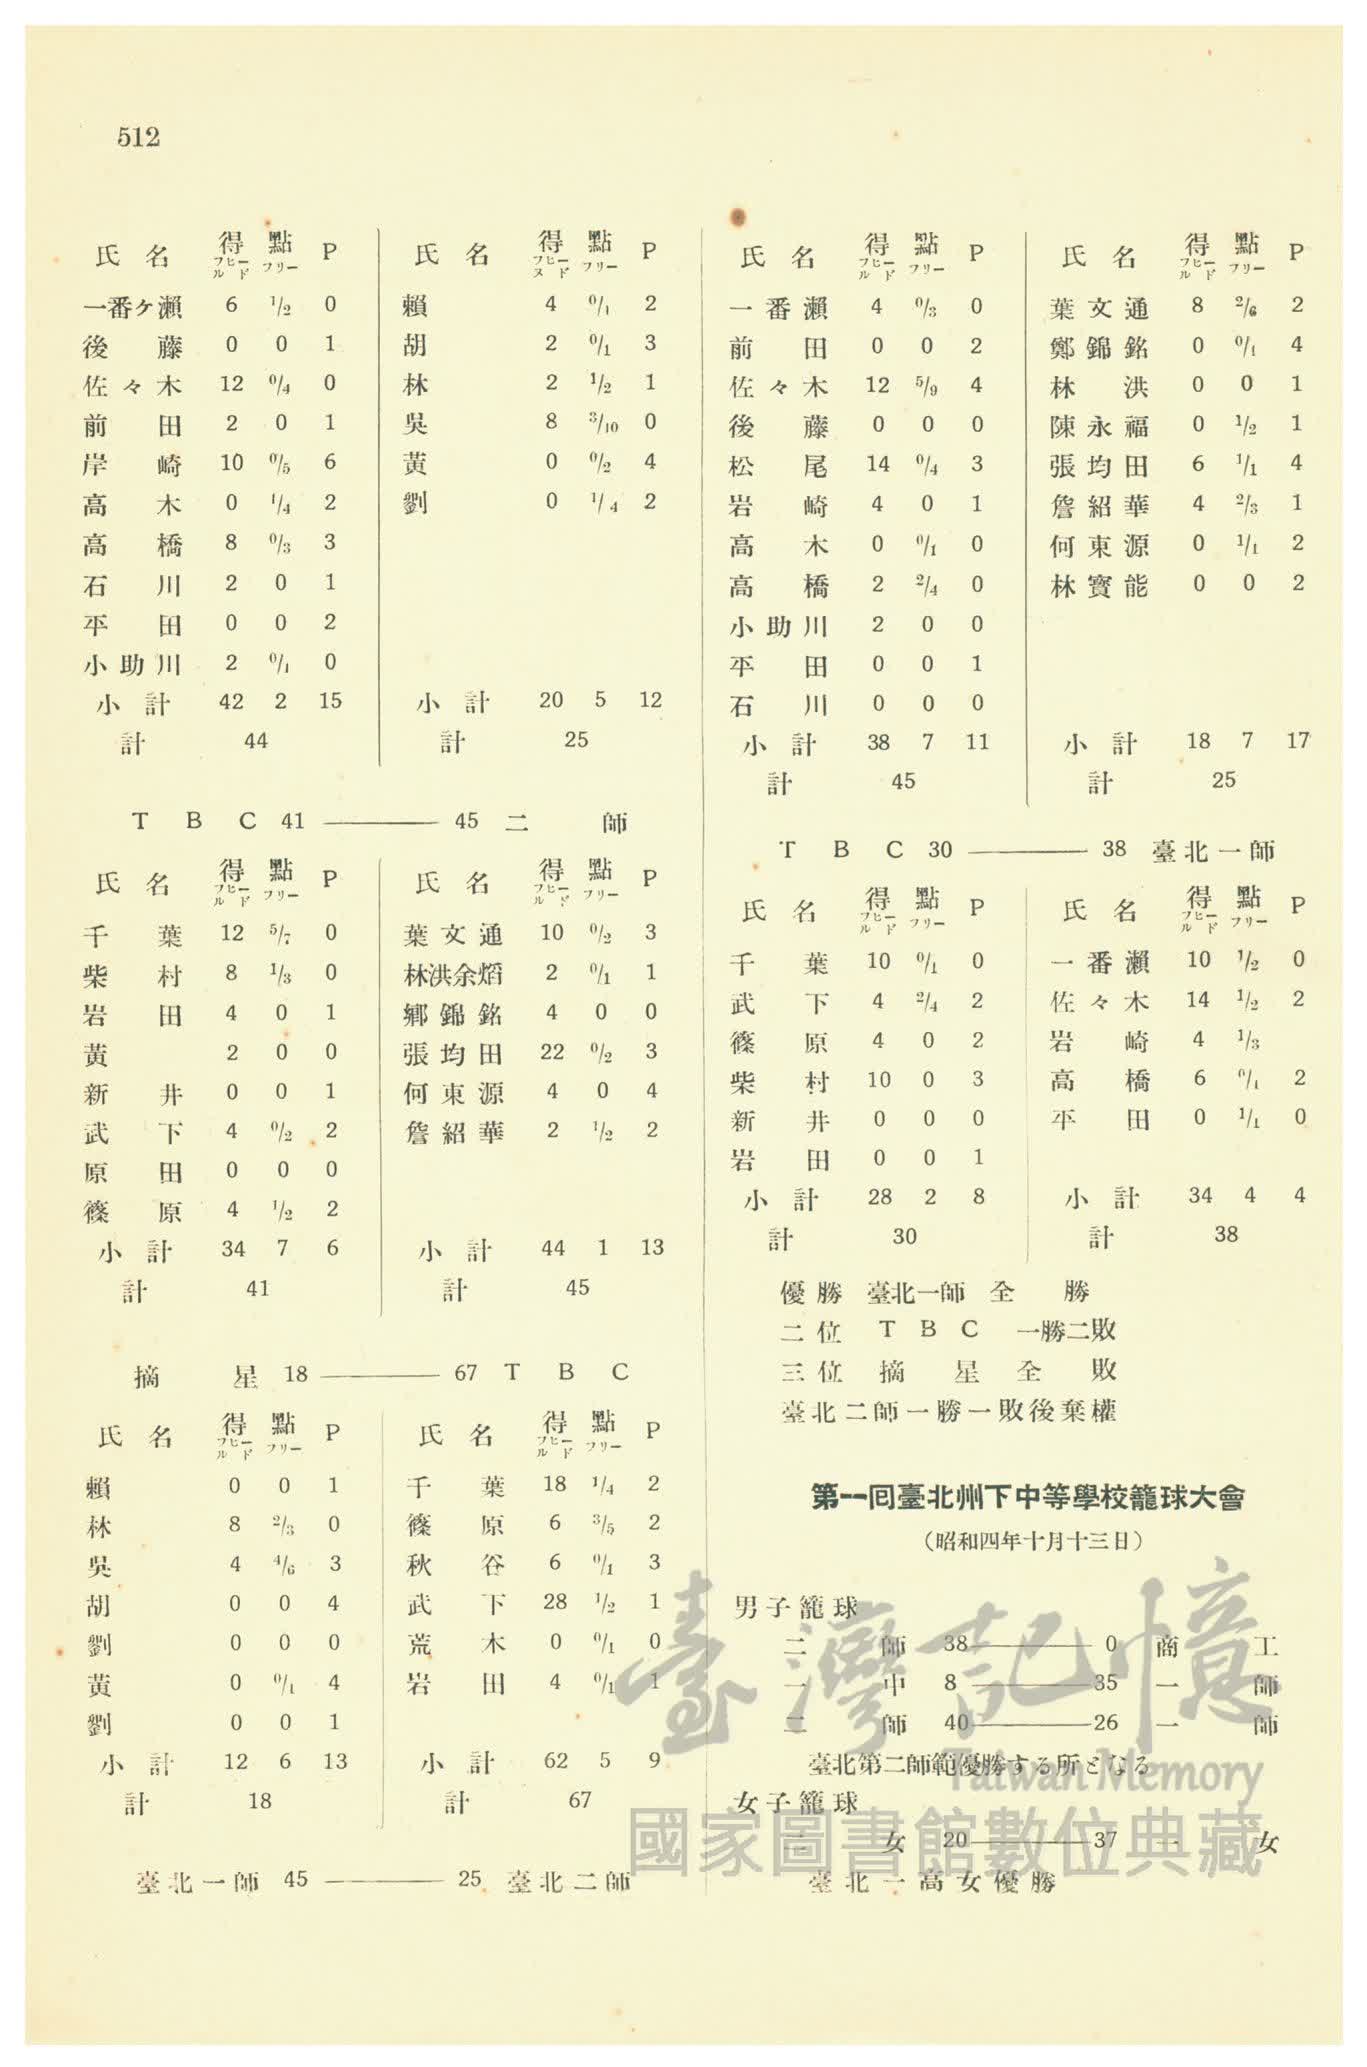 512
氏名 得點 P 氏名 得點 P
フヒールド フリー フヒーヌド フリー
一番ケ瀨 6 1/2 0 賴 4 0/1 2
後藤 0 0 1 胡 2 0/1 3
佐々木 12 0/4 0 林 2 1/2 1
前田 2 0 1 吳 8 3/10 0
岸崎 10 0/5 6 黃 0 0/2 4
高木 0 1/4 2 劉 0 1/4 2
高橋 8 0/3 3
石川 2 0 1
平田 0 0 2
小助川 2 0/1 0
小計 42 2 15 小計 20 5 12
計 44 計 25
T B C 41 ——— 45 二師
氏名 得點 P 氏名 得點 P
フヒールド フリー フヒールド フリー
千葉 12 5/7 0 葉文通 10 0/2 3
柴村 8 1/3 0 林洪余熖 2 0/1 1
岩田 4 0 1 鄉錦銘 4 0 0
黃 2 0 0 張均田 22 0/2 3
新井 0 0 1 何東源 4 0 4
武下 4 0/2 2 詹紹華 2 1/2 2
原田 0 0 0
篠原 4 1/2 2
小計 34 7 6 小計 44 1 13
計 41 計 45
摘星 18 ——— 67 T B C
氏名 得點 P 氏名 得點 P
フヒールド フリー フヒールド フリー
賴 0 0 1 千葉 18 1/4 2
林 8 2/3 0 篠原 6 3/5 2
吳 4 4/6 3 秋谷 6 0/1 3
胡 0 0 4 武下 28 1/2 1
劉 0 0 0 荒木 0 0/1 0
黃 0 0/1 4 岩田 4 0/1 1
劉 0 0 1
小計 12 6 13 小計 62 5 9
計 18 計 67
臺北一師 45 ——— 25 臺北二師
氏名 得點 P 氏名 得點 P
フヒールド フリー フヒールド フリー
一番瀨 4 0/3 0 葉文通 8 2/6 2
前田 0 0 2 鄭錦銘 0 0/1 4
佐々木 12 5/9 4 林洪 0 0 1
後藤 0 0 0 陳永福 0 1/2 1
松尾 14 0/4 3 張均田 6 1/1 4
岩崎 4 0 1 詹紹華 4 2/3 1
高木 0 0/1 0 何東源 0 1/1 2
高橋 2 2/4 0 林寶能 0 0 2
小助川 2 0 0
平田 0 0 1
石川 0 0 0
小計 38 7 11 小計 18 7 17
計 45 計 25
T B C 30 ——— 38 臺北一師
氏名 得點 P 氏名 得點 P
フヒールド フリー フヒールド フリー
千葉 10 0/1 0 一番瀨 10 1/2 0
武下 4 2/4 2 佐々木 14 1/2 2
篠原 4 0 2 岩崎 4 1/3
柴村 10 0 3 高橋 6 0/1 2
新井 0 0 0 平田 0 1/1 0
岩田 0 0 1
小計 28 2 8 小計 34 4 4
計 30 計 38
優勝 臺北一師 全勝
二位 T B C 一勝二敗
三位 摘星 全敗
臺北二師一勝一敗後棄權
第一回臺北州下中等學校籠球大會
（昭和四年十月十三日）
男子籠球
二師 38 ——— 0 商工
一中 8 ——— 35 一師
二師 40 ——— 26 一師
臺北第二師範優勝する所となる
女子籠球
二女 20 ——— 37 一女
臺北一高女優勝
臺灣記憶
Taiwan Memory
國家圖書館數位典藏